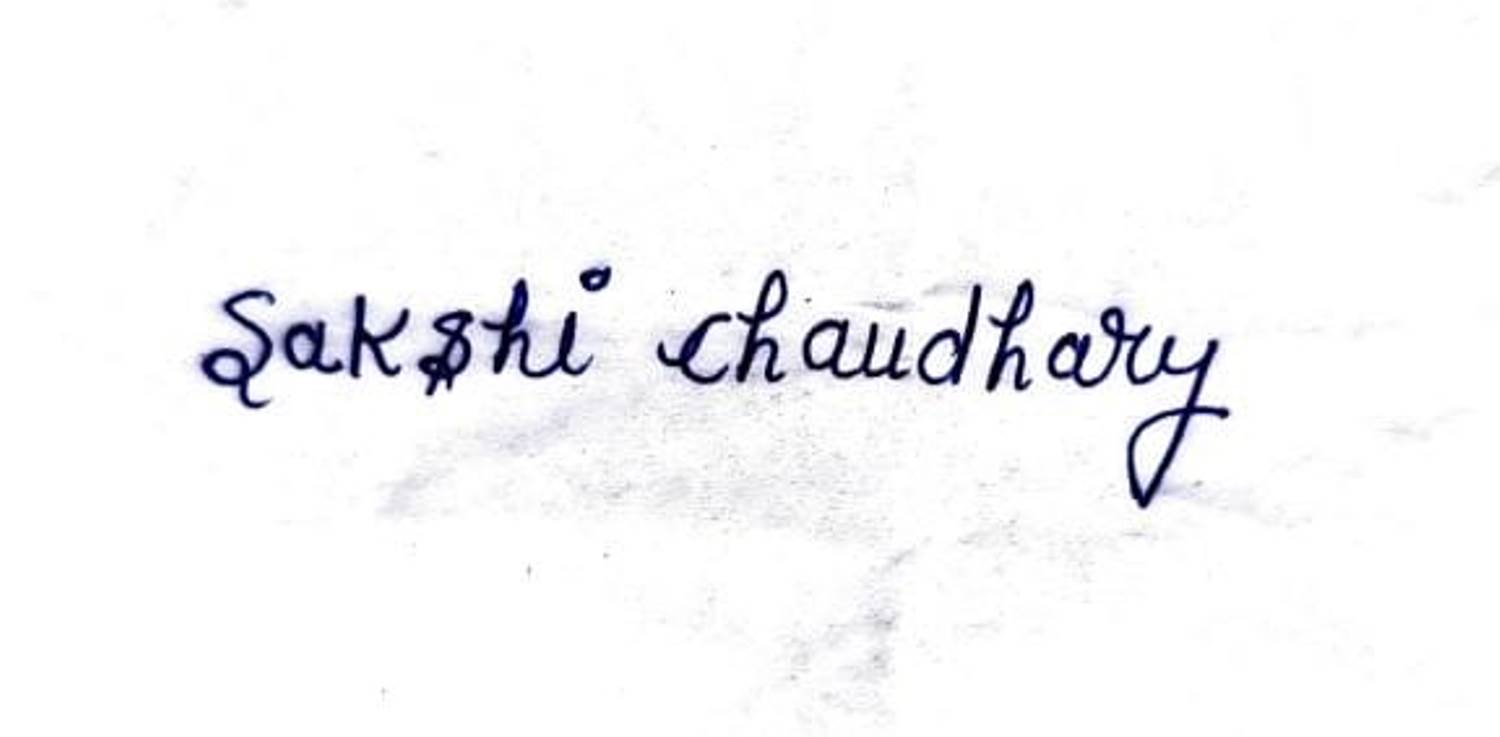 Sakshi chaudhary